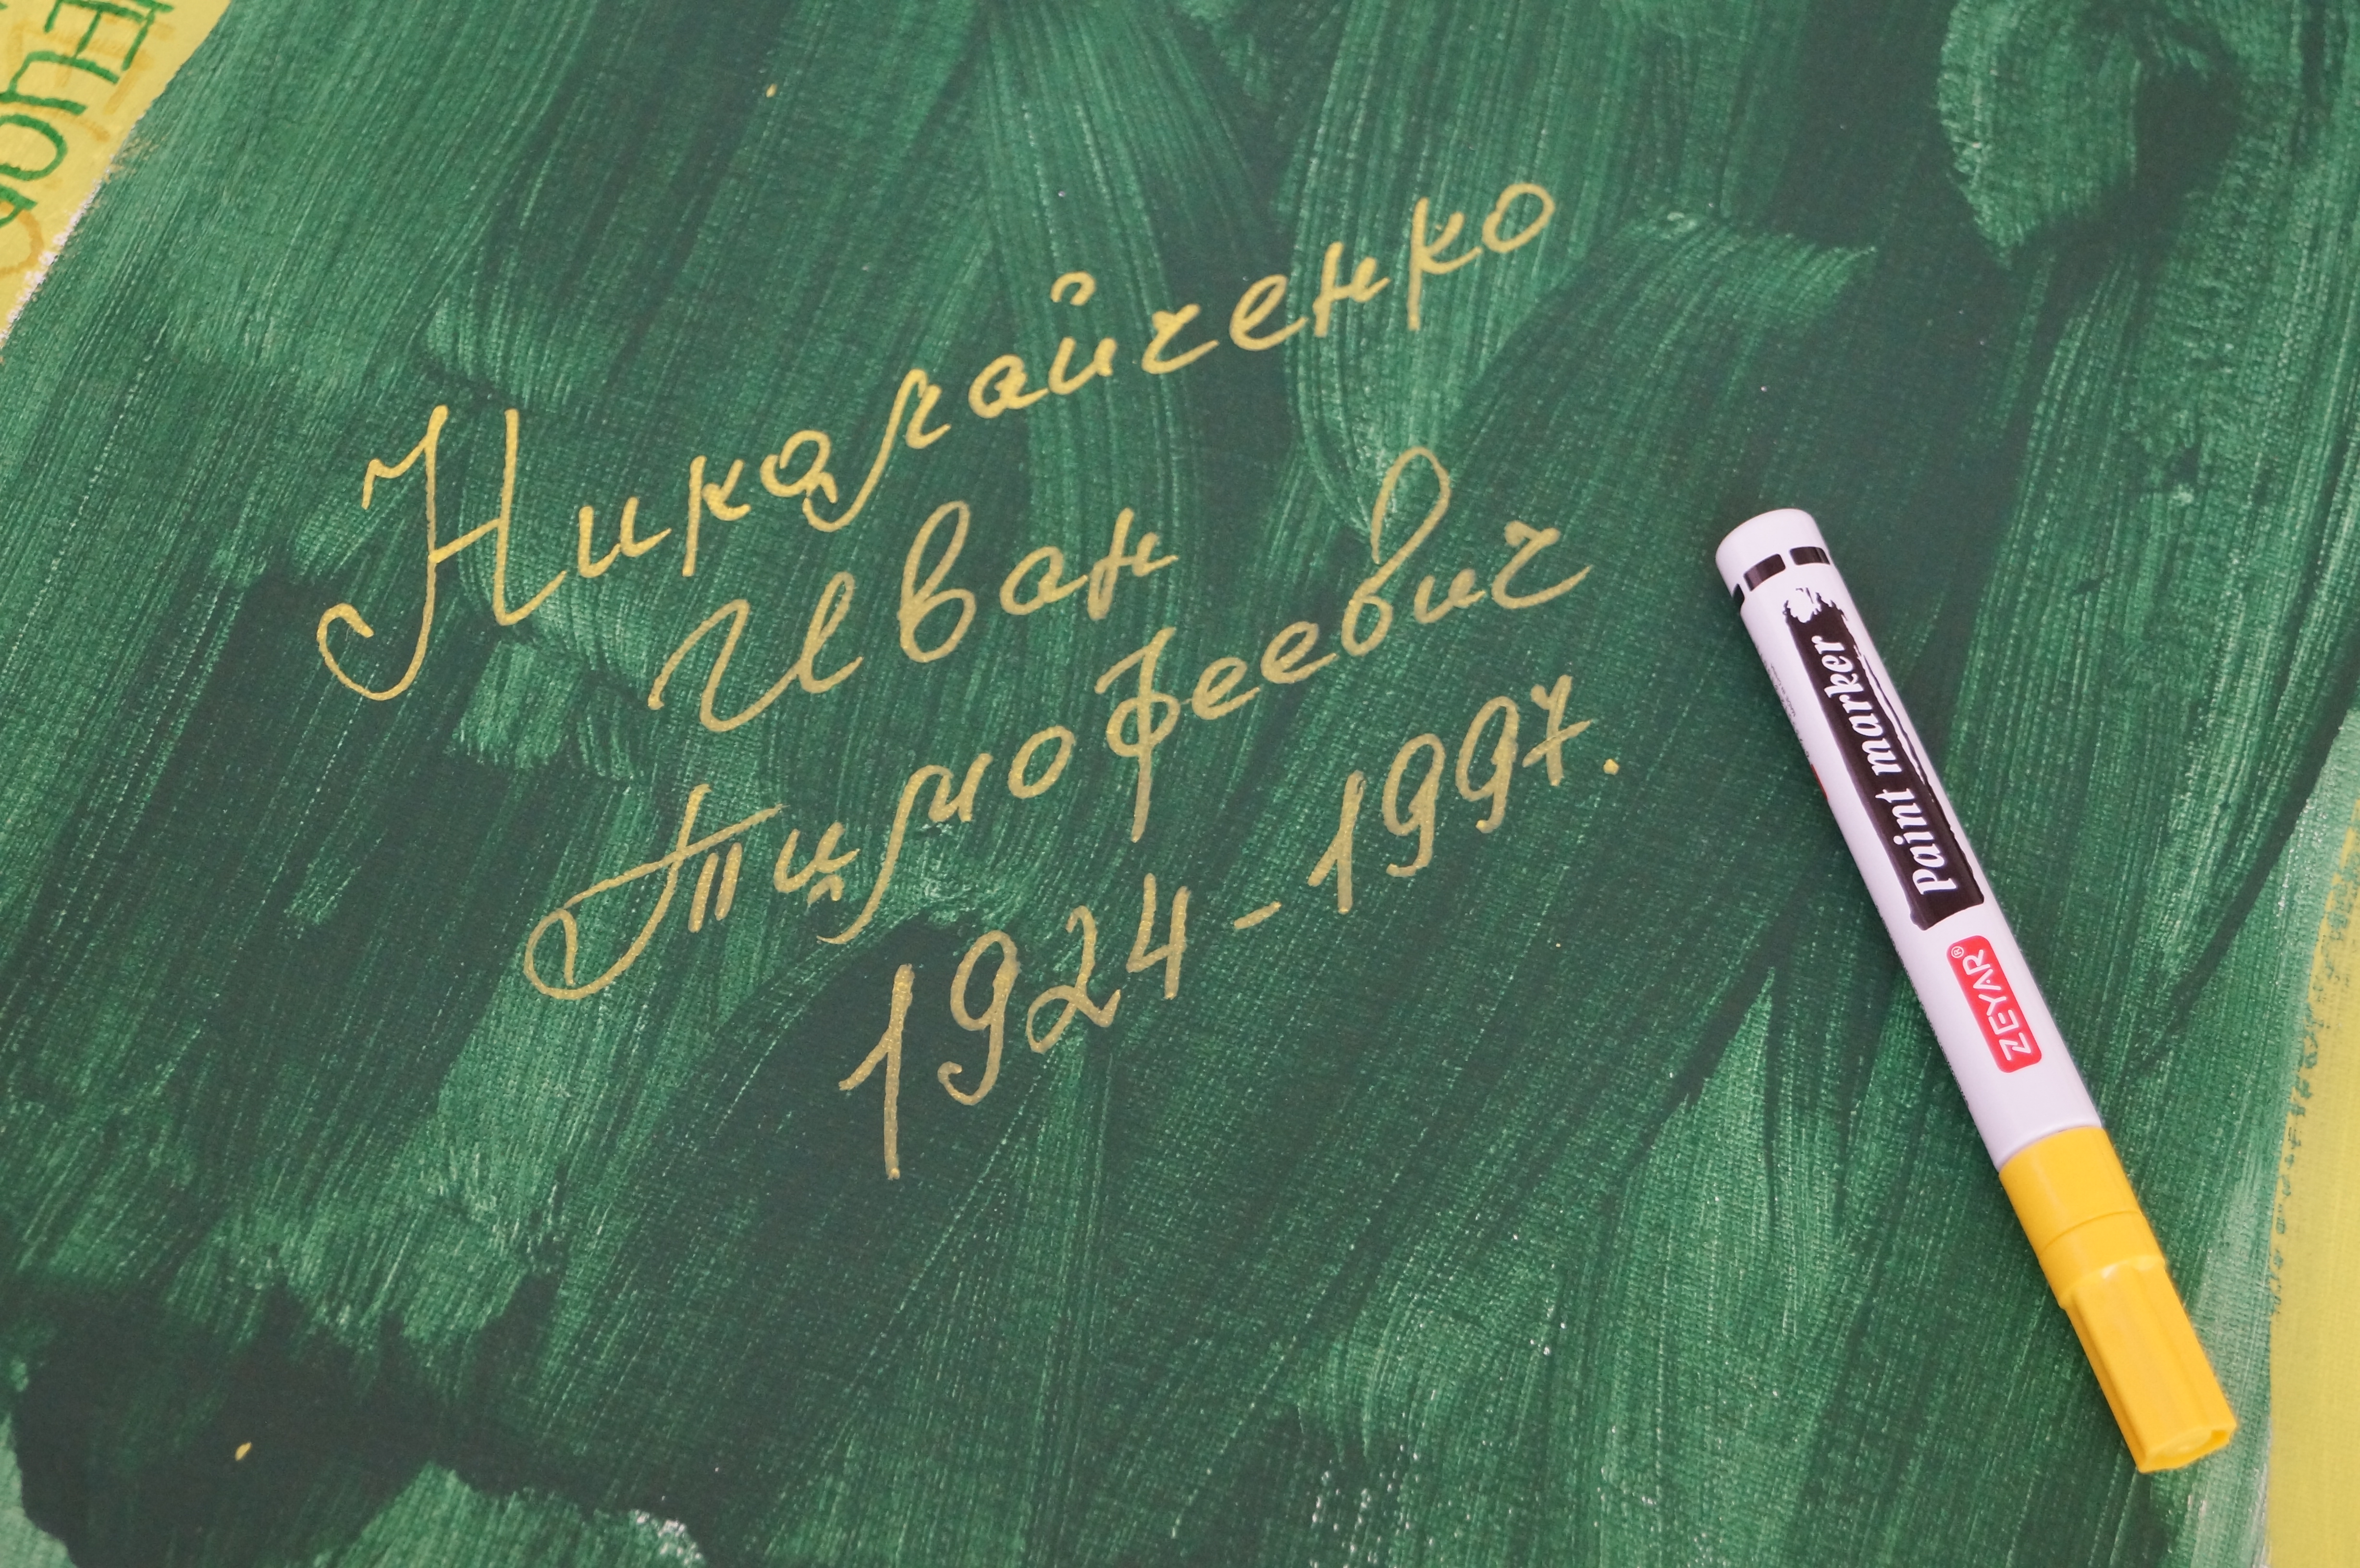 Николайченко
Иван
Тимофеевич
1924-1997.
Paint marker
ZEYAR®